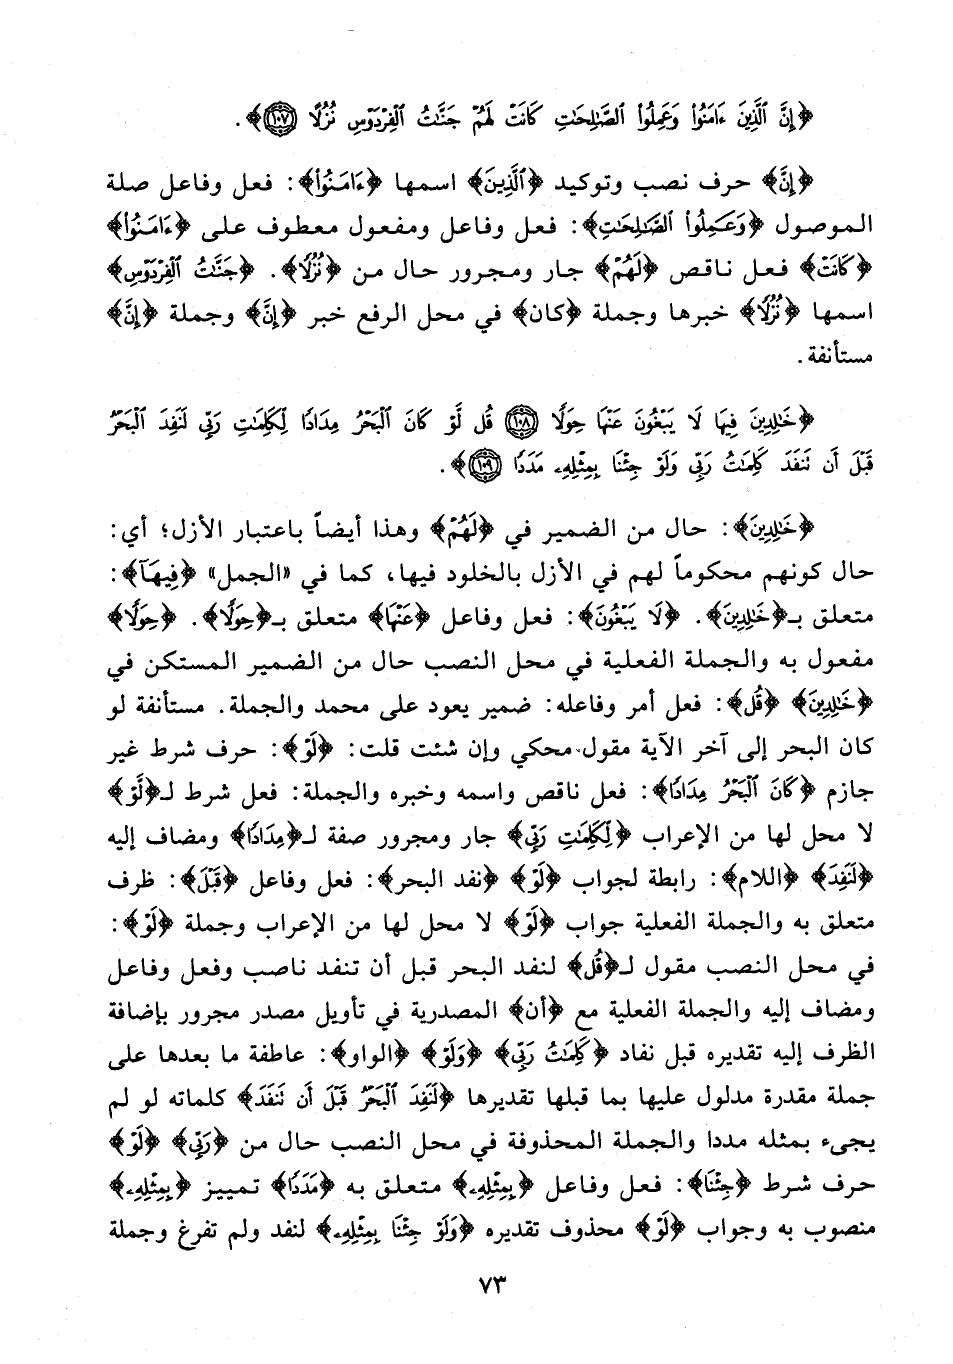 ﴿إِنَّ ٱلَّذِينَ ءَامَنُوا۟ وَعَمِلُوا۟ ٱلصَّٰلِحَٰتِ كَانَتْ لَهُمْ جَنَّٰتُ ٱلْفِرْدَوْسِ نُزُلًا ١٠٧﴾.
﴿إِنَّ﴾ حرف نصب وتوكيد ﴿ٱلَّذِينَ﴾ اسمها ﴿ءَامَنُوا۟﴾: فعل وفاعل صلة
الموصول ﴿وَعَمِلُوا۟ ٱلصَّٰلِحَٰتِ﴾: فعل وفاعل ومفعول معطوف على ﴿ءَامَنُوا۟﴾
﴿كَانَتْ﴾ فعل ناقص ﴿لَهُمْ﴾ جار ومجرور حال من ﴿نُزُلًا﴾. ﴿جَنَّٰتُ ٱلْفِرْدَوْسِ﴾
اسمها ﴿نُزُلًا﴾ خبرها وجملة ﴿كان﴾ في محل الرفع خبر ﴿إِنَّ﴾ وجملة ﴿إِنَّ﴾
مستأنفة.
﴿خَٰلِدِينَ فِيهَا لَا يَبْغُونَ عَنْهَا حِوَلًا ١٠٨ قُل لَّوْ كَانَ ٱلْبَحْرُ مِدَادًا لِّكَلِمَٰتِ رَبِّى لَنَفِدَ ٱلْبَحْرُ
قَبْلَ أَن تَنفَدَ كَلِمَٰتُ رَبِّى وَلَوْ جِئْنَا بِمِثْلِهِۦ مَدَدًا ١٠٩﴾.
﴿خَٰلِدِينَ﴾: حال من الضمير في ﴿لَهُمْ﴾ وهذا أيضاً باعتبار الأزل؛ أي:
حال كونهم محكوماً لهم في الأزل بالخلود فيها، كما في «الجمل» ﴿فِيهَآ﴾:
متعلق بـ﴿خَٰلِدِينَ﴾. ﴿لَا يَبْغُونَ﴾: فعل وفاعل ﴿عَنْهَا﴾ متعلق بـ﴿حِوَلًا﴾. ﴿حِوَلًا﴾
مفعول به والجملة الفعلية في محل النصب حال من الضمير المستكن في
﴿خَٰلِدِينَ﴾ ﴿قُل﴾: فعل أمر وفاعله: ضمير يعود على محمد والجملة. مستأنفة لو
كان البحر إلى آخر الآية مقول محكي وإن شئت قلت: ﴿لَوْ﴾: حرف شرط غير
جازم ﴿كَانَ ٱلْبَحْرُ مِدَادًا﴾: فعل ناقص واسمه وخبره والجملة: فعل شرط لـ﴿لَّوْ﴾
لا محل لها من الإعراب ﴿لِّكَلِمَٰتِ رَبِّى﴾ جار ومجرور صفة لـ﴿مِدَادًا﴾ ومضاف إليه
﴿لَنَفِدَ﴾ ﴿اللام﴾: رابطة لجواب ﴿لَوْ﴾ ﴿نفد البحر﴾: فعل وفاعل ﴿قَبْلَ﴾: ظرف
متعلق به والجملة الفعلية جواب ﴿لَوْ﴾ لا محل لها من الإعراب وجملة ﴿لَوْ﴾:
في محل النصب مقول لـ﴿قُل﴾ لنفد البحر قبل أن تنفد ناصب وفعل وفاعل
ومضاف إليه والجملة الفعلية مع ﴿أن﴾ المصدرية في تأويل مصدر مجرور بإضافة
الظرف إليه تقديره قبل نفاد ﴿كَلِمَٰتُ رَبِّى﴾ ﴿وَلَوْ﴾ ﴿الواو﴾: عاطفة ما بعدها على
جملة مقدرة مدلول عليها بما قبلها تقديرها ﴿لَنَفِدَ ٱلْبَحْرُ قَبْلَ أَن تَنفَدَ﴾ كلماته لو لم
يجىء بمثله مددا والجملة المحذوفة في محل النصب حال من ﴿رَبِّى﴾ ﴿لَوْ﴾
حرف شرط ﴿جِئْنَا﴾: فعل وفاعل ﴿بِمِثْلِهِۦ﴾ متعلق به ﴿مَدَدًا﴾ تمييز ﴿بِمِثْلِهِۦ﴾
منصوب به وجواب ﴿لَوْ﴾ محذوف تقديره ﴿وَلَوْ جِئْنَا بِمِثْلِهِۦ﴾ لنفد ولم تفرغ وجملة
٧٣